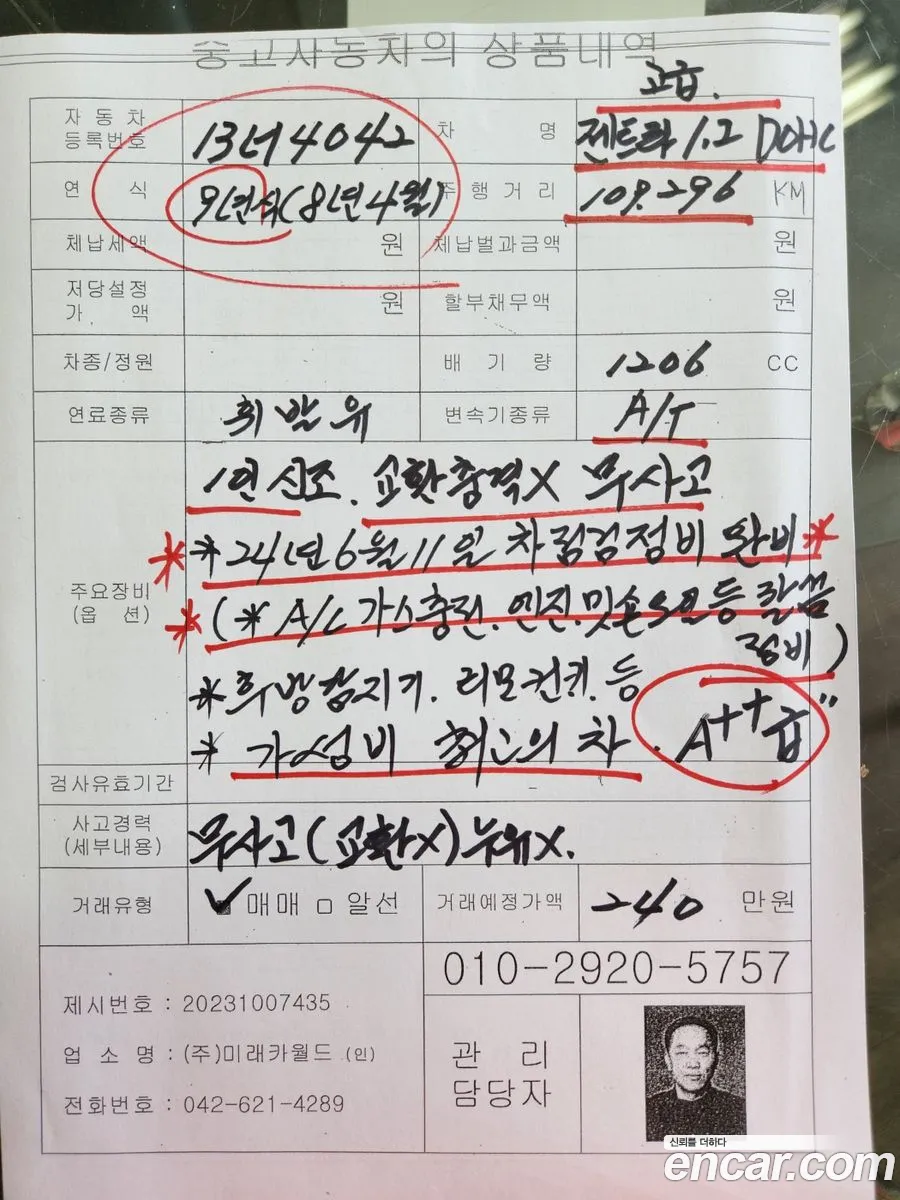 중고자동차의 상품내역
고급.
자 동 차
등록번호
13너4042
차 명
젠트라 1.2 DOHC
연 식
9년식(8년4월)
주행거리
109.296 KM
체납세액 원
체납벌과금액 원
저당설정
가 액
원
할부채무액 원
차종/정원
배 기 량
1206 CC
연료종류
휘발유
변속기종류
A/T
주요장비
(옵 션)
1인신조. 교환충격X 무사고
*24년6월11일 차점검정비 완비*
(* A/C가스충전. 엔진.밋숀오일등 말끔
정비)
*후방감지기. 리모컨키. 등
* 가성비 최고의 차. A++급"
검사유효기간
사고경력
(세부내용)
무사고(교환X)누유X.
거래유형
✓매매 □ 알선
거래예정가액
240 만원
010-2920-5757
제시번호 : 20231007435
업 소 명 : (주)미래카월드 (인)
전화번호 : 042-621-4289
관 리
담당자
신뢰를 더하다
encar.com